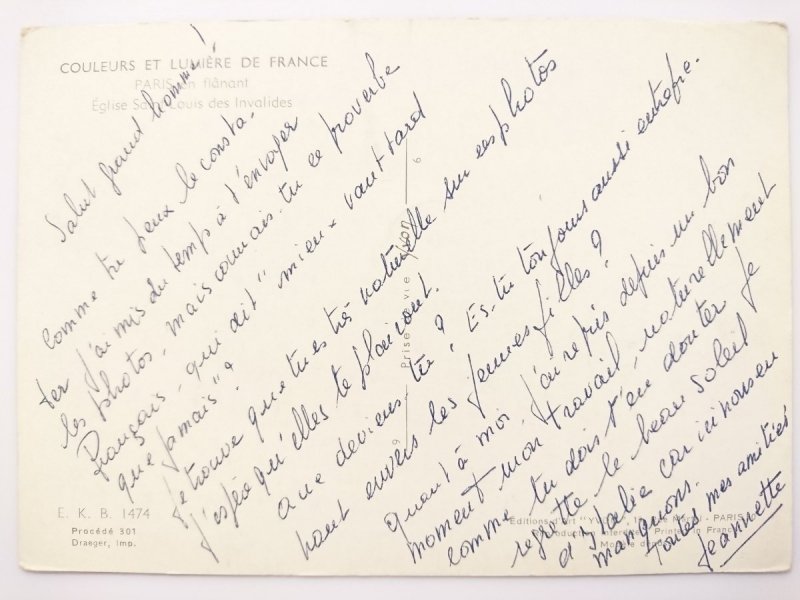 COULEURS ET LUMIÈRE DE FRANCE
PARIS en flânant
Église Saint-Louis des Invalides
Salut grand homme!
Comme tu peux le consta-
ter j'ai mis du temps à t'envoyer
les photos, mais connais-tu ce proverbe
Français, qui dit "mieux vaut tard
que jamais"?
Je trouve que tu es très naturelle sur ces photos
j'espère qu'elles te plairont.
Que deviens-tu? Es-tu toujours aussi
envers les jeunes filles?
Quant à moi, j'ai repris depuis un bon
moment mon travail, naturellement
comme tu dois t'en douter je
regrette le beau soleil
d'Italie car ici nous en
manquons.
Toutes mes amitiés
Jeannette
Prise de vie Yvon
E. K. B. 1474
Procédé 301
Draeger, Imp.
Editions d'Art "YVON", PARIS
Printed in France